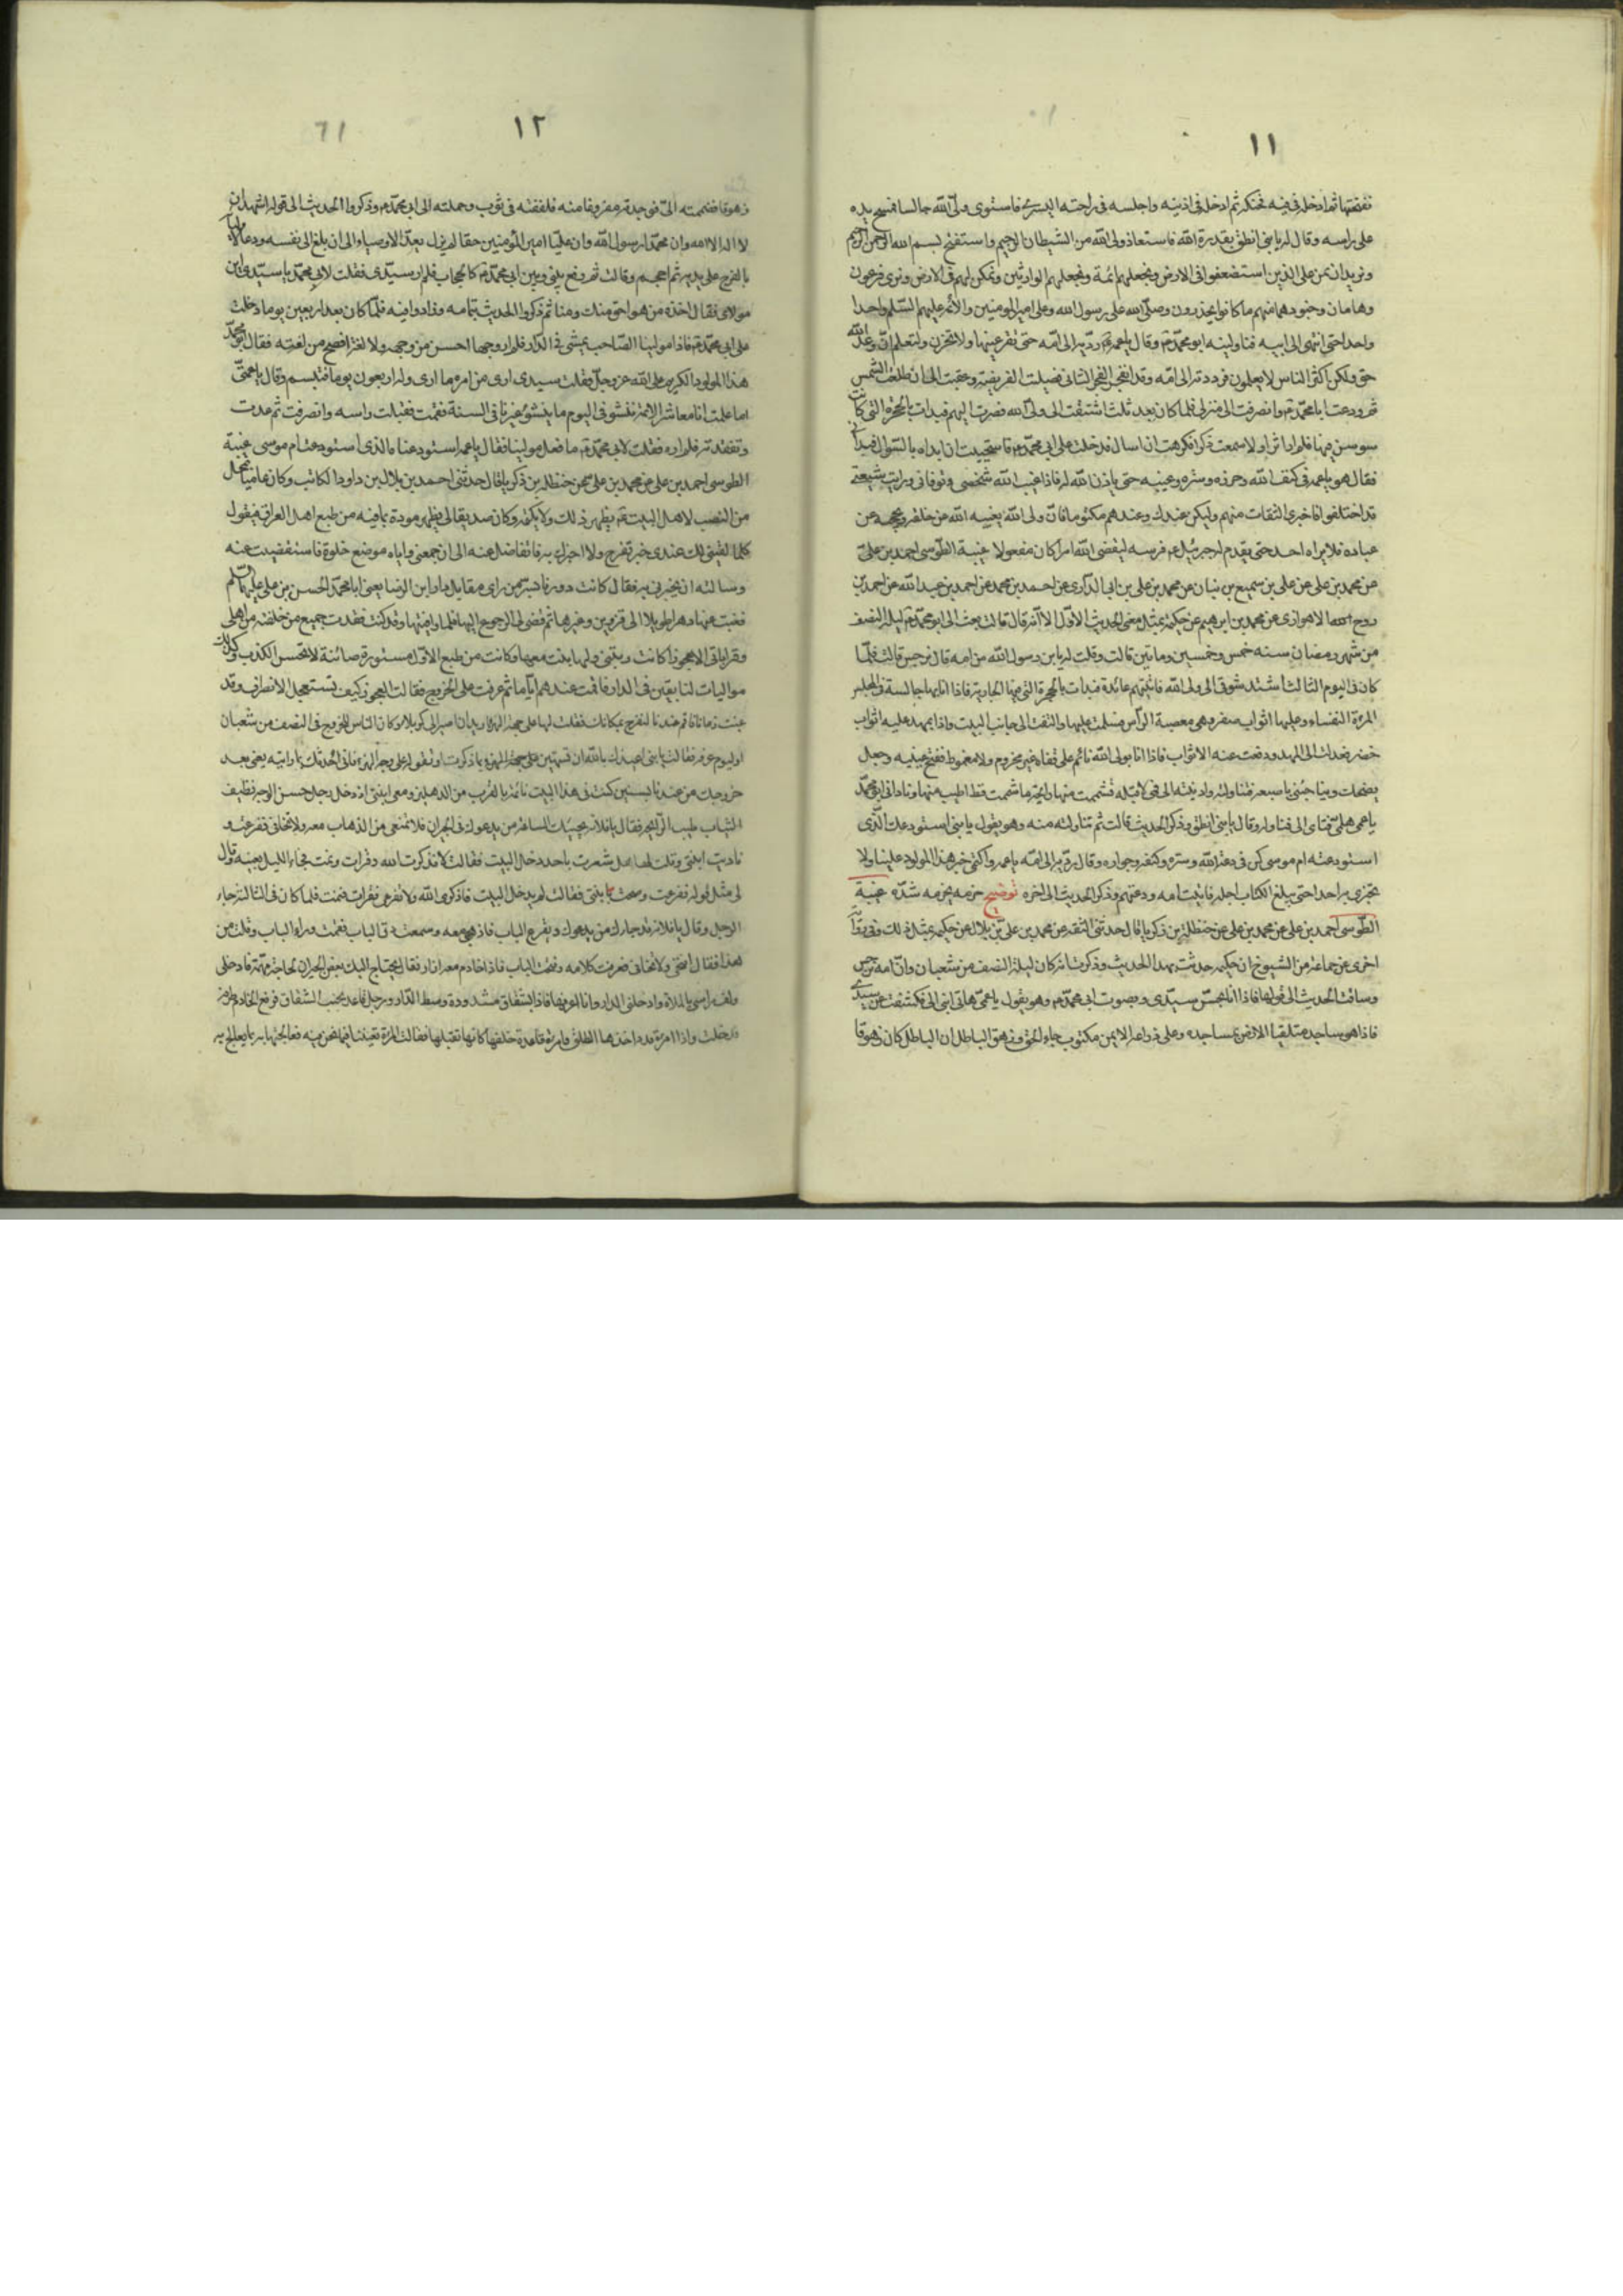 ١١
فنفضها ثم ادخله في فيه فحنكه ثم ادخله في اذنيه واجلسه في راحته اليسرى فاستوى ولي الله جالسا فمسح يده
على راسه وقال له يا بني انطق بقدرة الله فاستعاذ ولي الله من الشيطان الرجيم واستفتح بسم الله الرحمن الرحيم
ونريد ان نمن على الذين استضعفوا في الارض ونجعلهم ائمة ونجعلهم الوارثين ونمكن لهم في الارض ونرى فرعون
وهامان وجنودهما منهم ما كانوا يحذرون وصلى الله على رسول الله وعلى امير المؤمنين والائمة عليهم السلم واحدا
واحدا حتى انتهى الى ابيه فناولنيه ابو محمد ع وقال يا عمة رديه الى امه حتى تقر عينها ولا تحزن ولتعلم ان وعد الله
حق ولكن اكثر الناس لا يعلمون فرددته الى امه وقد انفجر الفجر الثاني فصليت الفريضة وعقبت الى ان طلعت الشمس
ثم ودعت ابا محمد ع وانصرفت الى منزلي فلما كان بعد ثلث اشتقت الى ولي الله فصرت اليهم فبدات بالحجرة التي كانت
سوسن فيها فلم ار اثرا ولا سمعت ذكرا فكرهت ان اسال فدخلت على ابي محمد ع فاستحييت ان ابداه بالسؤال فبداني
فقال هو يا عمة في كنف الله وحرزه وستره وغيبه حتى ياذن الله له فاذا غيب الله شخصي وتوفاني ورايت شيعتي
قد اختلفوا فاخبري الثقات منهم وليكن عندك وعندهم مكتوما فان ولي الله يغيبه الله عن خلقه ويحجبه عن
عباده فلا يراه احد حتى يقدم له جبرئيل ع فرسه ليقضي الله امرا كان مفعولا غيبة الطوسي احمد بن علي
عن محمد بن علي عن علي بن سميع بن بنان عن محمد بن علي بن ابي الداري عن احمد بن محمد عن احمد بن عبد الله عن احمد بن
روح الاهوازي عن محمد بن ابرهيم عن حكيمة بمثل معنى الحديث الاول الا انه قال قالت بعث الي ابو محمد ع ليلة النصف
من شهر رمضان سنة خمس وخمسين وماتين قالت وقلت له يا بن رسول الله من امه قال نرجس قالت فلما
كان في اليوم الثالث اشتد شوقي الى ولي الله فاتيتهم عائدة فبدات بالحجرة التي فيها الجارية فاذا انا بها جالسة في مجلس
المرءة النفساء وعليها اثواب صفر وهي معصبة الراس فسلمت عليها والتفت الى جانب البيت واذا بمهد عليه اثواب
خضر فعدلت الى المهد ورفعت عنه الاثواب فاذا انا بولي الله نائم على قفاه غير محزوم ولا مقموط ففتح عينيه وجعل
يضحك ويناجيني باصبعه فتناولته وادنيته الى فمي لاقبله فشممت منه رائحة ما شممت قط اطيب منها وناداني ابو محمد
يا عمتي هلمي فتاي الي فتناوله وقال يا بني انطق وذكر الحديث قالت ثم تناولته منه وهو يقول يا بني استودعك الذي
استودعته ام موسى كن في دعة الله وستره وكنفه وجواره وقال رديه الى امه يا عمة واكتمي خبر هذا المولود علينا ولا
تخبري به احدا حتى يبلغ الكتاب اجله فاتيت امه وودعتهم وذكر الحديث الى اخره توضيح حزمه يحزمه شده غيبة
الطوسي احمد بن علي عن محمد بن علي عن حنظلة بن زكريا قال حدثني الثقة عن محمد بن علي بن بلال عن حكيمة بمثل ذلك وفي رواية
اخرى عن جماعة من الشيوخ ان حكيمة حدثت بهذا الحديث وذكرت انه كان ليلة النصف من شعبان وان امه نرجس
وساقت الحديث الى قولها فاذا انا بحس سيدي وبصوت ابي محمد ع وهو يقول يا عمتي هاتي ابني الي فكشفت عن سيدي
فاذا هو ساجد متلقيا الارض بمساجده وعلى ذراعه الايمن مكتوب جاء الحق وزهق الباطل ان الباطل كان زهوقا
١٢
زهوقا فضممته الي فوجدته مفروغا منه فلففته في ثوب وحملته الى ابي محمد ع وذكروا الحديث الى قوله اشهد ان
لا اله الا الله وان محمدا رسول الله وان عليا امير المؤمنين حقا ثم لم يزل يعد الاوصياء الى ان بلغ الى نفسه ودعا لاوليائه
بالفرج على يديه ثم احجم وقالت ثم رفع بيني وبين ابي محمد ع كالحجاب فلم ار سيدي فقلت لابي محمد يا سيدي اين
مولاي فقال اخذه من هو احق منك ومنا ثم ذكروا الحديث بتمامه وزادوا فيه فلما كان بعد اربعين يوما دخلت
على ابي محمد ع فاذا مولينا الصاحب يمشي في الدار فلم ار وجها احسن من وجهه ولا لغة افصح من لغته فقال ابو محمد
هذا المولود الكريم على الله عز وجل فقلت سيدي ارى من امره ما ارى وله اربعون يوما فتبسم وقال يا عمتي
اما علمت انا معاشر الائمة ننشؤ في اليوم ما ينشؤ غيرنا في السنة فقمت فقبلت راسه وانصرفت ثم عدت
وتفقدته فلم اره فقلت لابي محمد ع ما فعل مولينا فقال يا عمة استودعناه الذي استودعت ام موسى غيبة
الطوسي احمد بن علي عن محمد بن علي عن حنظلة بن زكريا قال حدثني احمد بن بلال بن داود الكاتب وكان عاميا بمحل
من النصب لاهل البيت ع يظهر ذلك ولا يكتمه وكان صديقا لي يظهر مودة بما فيه من طبع اهل العراق فيقول
كلما لقيني لك عندي خبر تفرح به ولا اخبرك به فاتغافل عنه الى ان جمعني واياه موضع خلوة فاستقصيت عنه
وسالته ان يخبرني به فقال كانت دورنا بسر من راى مقابل دار ابن الرضا يعني ابا محمد الحسن بن علي عليهما السلم
فغبت عنها دهرا طويلا الى قزوين وغيرها ثم قضي لي الرجوع اليها فلما وافيتها وقد كنت فقدت جميع من خلفته من اهلي
وقراباتي الا عجوزا كانت ربتني ولها بنت معها وكانت من طبع الاول مستورة صائنة لا تحسن الكذب وكذلك
مواليات لنا بقين في الدار فاقمت عندهم اياما ثم عزمت على الخروج فقالت العجوز كيف تستعجل الانصراف وقد
غبت زمانا فاقم عندنا لنفرح بمكانك فقلت لها على جهة الهزؤ اريد ان اصير الى كربلا وكان الناس للخروج في النصف من شعبان
او ليوم عرفة فقالت يا بني اعيذك بالله ان تستهين على جهة الهزء بما ذكرت او تقوله على وجه الهزء فاني احدثك بما رايته يعني بعد
خروجك من عندنا بسنتين كنت في هذا البيت نائمة بالقرب من الدهليز ومعي ابنتي اذ دخل رجل حسن الوجه نظيف
الثياب طيب الرايحة فقال يا فلانة يجيئك الساعة من يدعوك في الجيران فلا تمتنعي من الذهاب معه ولا تخافي ففزعت و
ناديت ابنتي وقلت لها هل شعرت باحد دخل البيت فقالت لا فذكرت الله وقرات ونمت فجاء الليل بعينه وقال
لي مثل قوله ففزعت وصحت يا بنتي فقالت لم يدخل البيت فاذكري الله ولا تفزعي فقرات فنمت فلما كان في الثالثة جاء
الرجل وقال يا فلانة قد جاءك من يدعوك ويقرع الباب فاذهبي معه وسمعت دق الباب فقمت وراء الباب وقلت من
هذا فقال افتحي ولا تخافي فعرفت كلامه وفتحت الباب فاذا خادم معه ازار فقال يحتاج اليك بعض الجيران لحاجة مهمة فادخلي
ولف راسي بالملاءة وادخلني الدار وانا اعرفها فاذا بشقاق مشدودة وسط الدار ورجل قاعد بجنب الشقاق فرفع الخادم طرفه
فدخلت واذا امرءة قد اخذها الطلق وامرءة قاعدة خلفها كانها تقبلها فقالت المرءة تعيننا فيما نحن فيه فعالجتها بما يعالج به